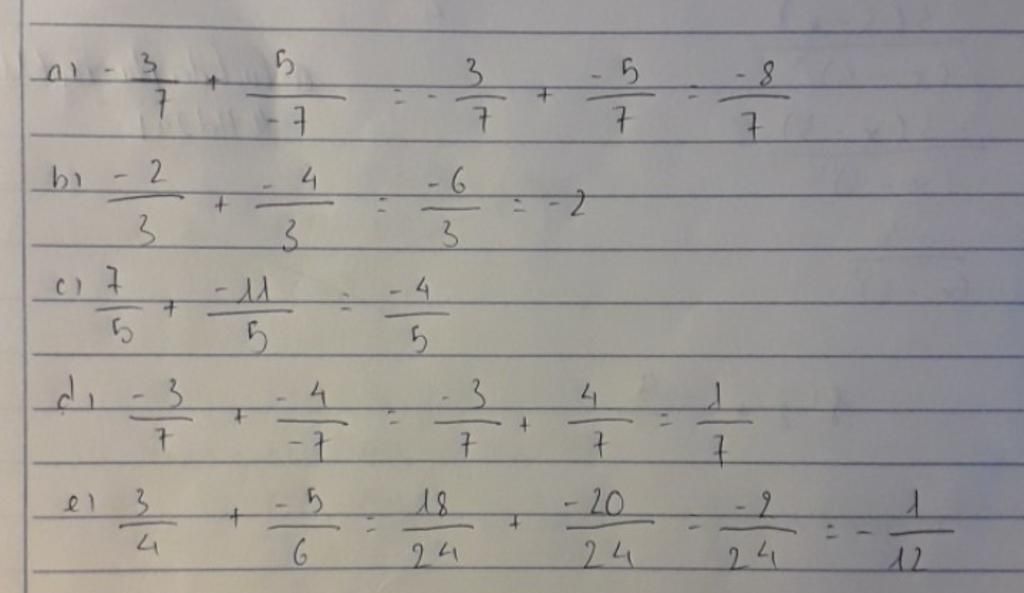 a) - 3/7 + 5/-7 = - 3/7 + -5/7 = -8/7
b) -2/3 + -4/3 = -6/3 = -2
c) 7/5 + -11/5 = -4/5
d) -3/7 + -4/-7 = -3/7 + 4/7 = 1/7
e) 3/4 + -5/6 = 18/24 + -20/24 = -2/24 = - 1/12